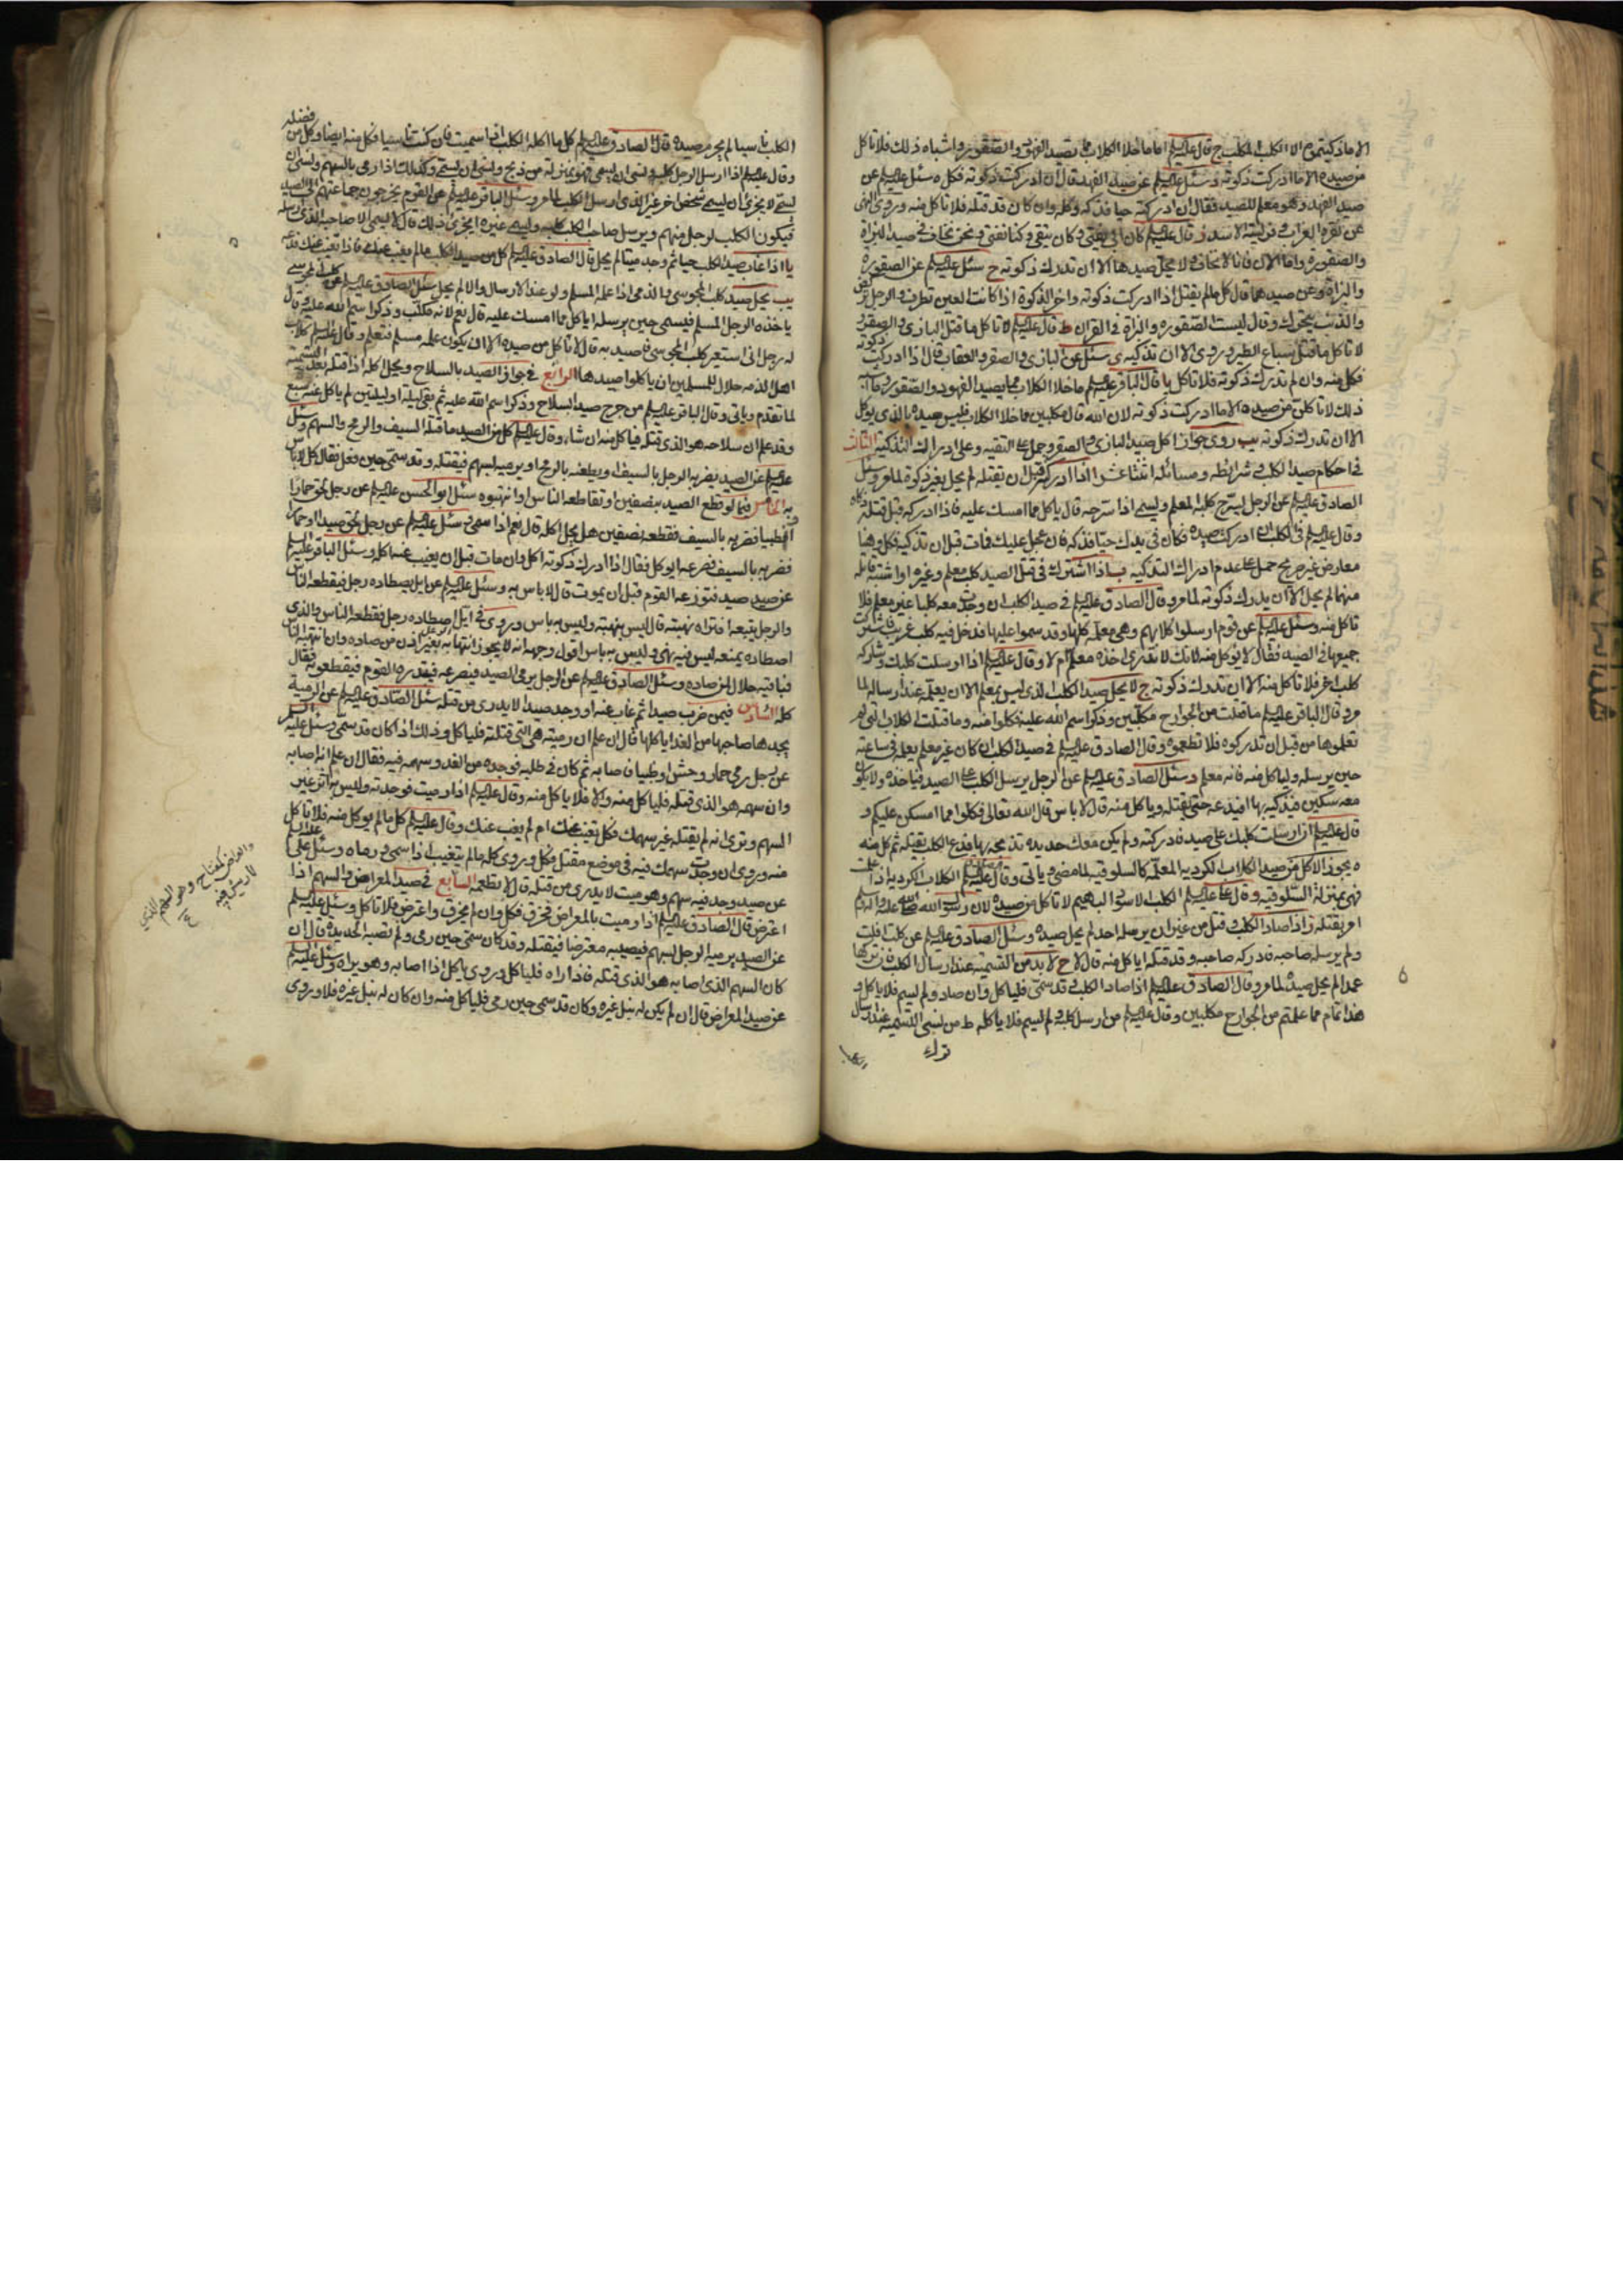 الا ما ذكيتموه الا الكلب المكلب ج قال عليه السلام اما ما خلا الكلاب مما تصيد الفهود والصقور واشباه ذلك فلا تاكل
من صيده الا ما ادركت ذكوته د سئل عليه السلام عن صيد الفهد قال ان ادركت ذكوته فكل ه سئل عليه السلام عن
صيد الفهد وهو معلم للصيد فقال ان ادركته حيا فذكه وكله وان كان قد قتله فلا تاكل منه و روى
قال عليه السلام كان ابي يفتي وكان يتقي وكنا نفتي ونحن نخاف في صيد البزاة
والصقوره واما الان فانا لا نخاف ولا يحل صيدها الا ان تدرك ذكوته ح سئل عليه السلام عن الصقورة
والبزاة وعن صيدهما قال كل ما لم يقتل اذا ادركت ذكوته واخر الذكوة اذا كانت العين تطرف والرجل تركض
والذنب يتحرك وقال ليست الصقوره والبزاة في القران ط قال عليه السلام لا تاكل ما قتل البازي والصقور
لا تاكل ما قتل سباع الطير و روى الا ان تذكيه ي سئل عن البازي والصقر والعقاب قال اذا ادركت ذكوته
فكل منه وان لم تدرك ذكوته فلا تاكل يا قال الباقر عليه السلام ما خلا الكلاب مما يصيد الفهود والصقور وما اشبه
ذلك لا تاكلن من صيده الا ما ادركت ذكوته لان الله قال مكلبين فما خلا الكلاب فليس صيده بالذي يوكل
الا ان تدرك ذكوته يب روى جواز اكل صيد البازي والصقر وحمل على التقيه وعلى ادراك التذكية الثالث
في احكام صيد الكلب وشرائطه ومسائله اثنتا عشر ا اذا ادركه قبل ان تقتله لم يحل بغير ذكوة لما مر وسئل
الصادق عليه السلام عن الرجل يسرح كلبه المعلم ويسمي اذا سرحه قال ياكل مما امسك عليه فاذا ادركه قبل قتله ذكاه
وقال عليه السلام في الكلب ان ادركت صيده فكان في يدك حيا فذكه فان عجل عليك فمات قبل ان تذكيه فكل وهنا
معارض غير صريح حمل على عدم ادراك التذكيه ب اذا اشترك في قتل الصيد كلب معلم وغيره او اشتبه قاتله
منهما لم يحل الا ان يدرك ذكوته لما مر وقال الصادق عليه السلام في صيد الكلب ان وجدت معه كلبا غير معلم فلا
تاكل منه وسئل عليه السلام عن قوم ارسلوا كلابهم وهي معلمه كلها وقد سموا عليها فدخل فيه كلب غريب فاشتركت
جميعها في الصيد فقال لا يوكل منه لانك لا تدري اخذه معلم ام لا وقال عليه السلام اذا ارسلت كلبك وشاركه
كلب اخر فلا تاكل منه الا ان تدرك ذكوته ج لا يحل صيد الكلب الذي ليس بمعلم الا ان يعلمه عند ارساله لما
مر و قال الباقر عليه السلام ما قتلت من الجوارح مكلبين وذكر اسم الله عليه فكلوا منه وما قتلت الكلاب التي لم
تعلموها من قبل ان تدركوه فلا تطعموه وقال الصادق عليه السلام في صيد الكلب ان كان غير معلم يعلمه في ساعته
حين يرسله ولياكل منه فانه معلم د سئل الصادق عليه السلام عن الرجل يرسل الكلب على الصيد فياخذه ولا يكون
معه سكين فيذكيه بها افيدعه حتى يقتله وياكل منه قال لا باس قال الله تعالى فكلوا مما امسكن عليكم و
قال عليه السلام اذا ارسلت كلبك على صيد فادركته ولم يكن معك حديدة تذبحه بها فدع الكلب يقتله ثم كل منه
ه يجوز الاكل من صيد الكلاب الكردية المعلمه كالسلوقيه لما مضى وياتي وقال عليه السلام الكلاب الكرديه اذا علمت
فهي بمنزلة السلوقيه و قال عليه السلام الكلب الاسود البهيم لا تاكل من صيده لان رسول الله صلى الله عليه واله
امر بقتله ز اذا صاد الكلب وقتل من غير ان يرسله احد لم يحل صيده وسئل الصادق عليه السلام عن كلب افلت
ولم يرسله صاحبه فادركه صاحبه وقد قتله اياكل منه قال لا ح لا بد من التسميه عند ارسال الكلب فان تركها
عمدا لم يحل صيده لما مر وقال الصادق عليه السلام اذا صاد الكلب وقد سمى فلياكل وان صاد ولم يسم فلا ياكل و
هذا تمام مما علمتم من الجوارح مكلبين وقال عليه السلام من ارسل كلبه ولم يسم فلا ياكله ط من نسي التسميه عند ارسال
الكلب
الكلب ناسيا لم يحرم صيده قال الصادق عليه السلام كل ما اكل الكلب اذا سميت فان كنت ناسيا فكل منه ايضا وكل من فضله
وقال عليه السلام اذا ارسل الرجل كلبه ونسي ان يسمي فهو بمنزلة من ذبح ونسي ان يسمي وكذلك اذا رمى بالسهم ونسي ان
يسمي لا يجزي ان يسمي شخص اخر غير الذي ارسل الكلب لما مر وسئل الباقر عليه السلام عن القوم يخرجون جماعتهم الى الصيد
فيكون الكلب لرجل منهم ويرسل صاحب الكلب كلبه ويسمي غيره ايجزي ذلك قال لا يسمي الا صاحبه الذي ارسله
يا اذا غاب صيد الكلب حيا ثم وجد ميتا لم يحل قال الصادق عليه السلام كل من صيد الكلب ما لم يغب عنك فاذا تغيب عنك فدعه
يب يحل صيد كلب المجوسي والذمي اذا علمه المسلم ولو عند الارسال والا لم يحل سئل الصادق عليه السلام عن كلب المجوسي
ياخذه الرجل المسلم فيسمي حين يرسله اياكل مما امسك عليه قال نعم لانه مكلب وذكر اسم الله عليه وقال
له رجل اني استعير كلب المجوسي فاصيد به قال لا تاكل من صيده الا ان يكون علمه مسلم فتعلم وقال عليه السلام كلاب
اهل الذمه حلال للمسلمين ان ياكلوا صيدها الرابع في جواز الصيد بالسلاح ويحل اكله اذا قتله بعد التسمية
لما تقدم وياتي وقال الباقر عليه السلام من جرح صيدا بسلاح وذكر اسم الله عليه ثم بقي ليلة او ليلتين لم ياكل منه سبع
وقد علم ان سلاحه هو الذي قتله فياكل منه ان شاء وقال عليه السلام كل من الصيد ما قتل السيف والرمح والسهم وسئل
عليه السلام عن الصيد يضربه الرجل بالسيف او يطعنه بالرمح او يرميه بسهم فيقتله وقد سمى حين فعل فقال كل لا باس
به الخامس فيما لو قطع الصيد بنصفين او تقاطعه الناس او انتهبوه سئل ابو الحسن عليه السلام عن رجل لحق حمارا
او ظبيا فضربه بالسيف فقطعه نصفين هل يحل اكله قال نعم اذا سمى و سئل عليه السلام عن رجل لحق صيدا او حمارا
فضربه بالسيف فصرعه ايوكل فقال اذا ادرك ذكوته اكل وان مات قبل ان يغيب عنه اكله وسئل الباقر عليه السلام
عن صيد صيد فتوزعه القوم قبل ان يموت قال لا باس به وسئل عليه السلام عن ايل يصطاده رجل فيقطعه الناس
والرجل يتبعه افتراه نهبته قال ليس بنهبته وليس به باس وروى في ايل اصطاده رجل فقطعه الناس والذي
اصطاده يمنعه ليس فيه نهى وليس به باس اقول وجهه انه لا يجوز انتهابه بغير اذن من صاده وان انتهبه الناس
فباقيه حلال لمن صاده وسئل الصادق عليه السلام عن الرجل يرمي الصيد فيصرعه فيبتدره القوم فيقطعونه فقال
كله السادس فيمن ضرب صيدا ثم غاب عنه او وجد صيدا لا يدري من قتله سئل الصادق عليه السلام عن الرمية
يجدها صاحبها من الغد اياكلها قال ان علم ان رميته هي التي قتلته فلياكل وذلك اذا كان قد سمى وسئل عليه السلام
عن رجل رمى حمار وحش او ظبيا فاصابه ثم كان في طلبه فوجده من الغد وسهمه فيه فقال ان علم انه اصابه
وان سهمه هو الذي قتله فلياكل منه والا فلا ياكل منه وقال عليه السلام اذا رميت فوجدته وليس به اثر غير
السهم وترى انه لم يقتله غير سهمك فكل تغيب عنك ام لم يغب عنك وقال عليه السلام كل ما لم يوكل منه فلا تاكل
منه و روى ان وجدت سهمك فيه في موضع مقتل فكل و روى كله ما لم يتغيب اذا سمى و رماه و سئل علي عليه السلام
عن صيد وجد فيه سهم وهو ميت لا يدري من قتله قال لا تطعمه السابع في صيد المعراض والسهم اذا
اعترض قال الصادق عليه السلام اذا رميت بالمعراض فخرق فكل وان لم يخرق واعترض فلا تاكل وسئل عليه السلام
عن الصيد يرميه الرجل بسهم فيصيبه معترضا فيقتله وقد كان سمى حين رمى ولم تصبه الحديدة قال ان
كان السهم الذي اصابه هو الذي قتله فاذا راه فلياكل و روى ياكل اذا اصابه وهو يراه وسئل عليه السلام
عن صيد المعراض قال ان لم يكن له نبل غيره وكان قد سمى حين رمى فلياكل منه وان كان له نبل غيره فلا و روى